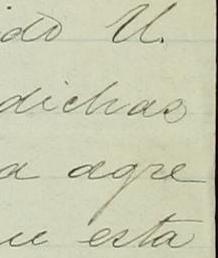 ido U.
dichas
a agre
ue esta